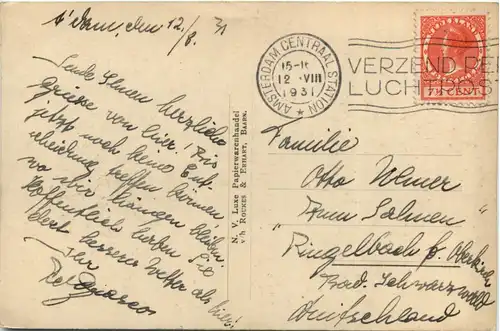 A'dam, den 12/8. 31
Sende Ihnen herzliche
Grüsse von hier. Bis
jetzt noch keine Ent-
scheidung treffen können,
wo wir hängen bleiben.
Hoffentlich haben Sie
dort besseres Wetter als hier.
Ihr
N. V. Luxe Papierwarenhandel
v/h ROUKES & ERHART, BAARN.
AMSTERDAM CENTRAAL STATION
12 VIII
1931
VERZEND PER
LUCHTPOST
NEDERLAND
7½ CENT
Familie
Otto
"
Ringelbach b. Oberkirch
Bad. Schwarzwald
Deutschland